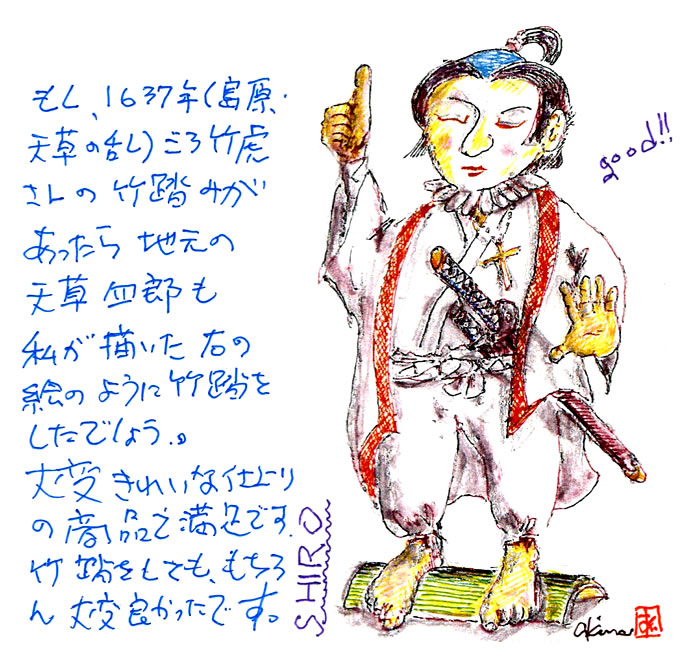 もし、1637年(島原・
天草の乱)ころ竹虎
さんの竹踏みが
あったら地元の
天草四郎も
私が描いた右の
絵のように竹踏を
したでしょう。
大変きれいな仕上り
の商品で満足です。
竹踏をしても、もちろ
ん大変良かったです。
SHIRO
good!!